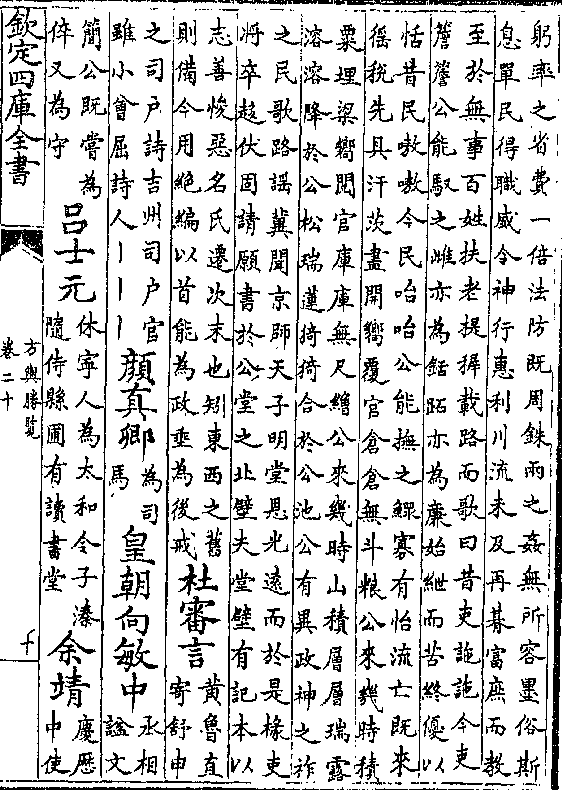 躬率之省費一倍法防既周銖兩之姦無所容墨俗斯
息單民得職威令神行惠利川流未及再朞富庶而教
至於無事百姓扶老提挈載路而歌曰昔吏訑訑今吏
詹詹公能馭之雖亦為銛跖亦為廉始紲而苦終優以
恬昔民嗷嗷今民咍咍公能撫之鰥寡有怡流亡既來
徭稅先具汙茨盡開嚮覆官倉倉無斗粮公來幾時積
粟埋梁嚮閱官庫庫無尺繒公來幾時山積層層瑞露
溶溶降於公松瑞蓮猗猗合於公池公有異政神之祚
之民歌路謡冀聞京師天子明堂恩光遠而於是椽吏
將卒趍伏固請願書於公堂之北壁夫堂壁有記本以
志善悛惡名氏遷次末也矧東西之舊
則備今用絶編以首能為政垂為後戒
杜審言
黄魯直
寄舒申
之司户詩吉州司户官
雖小曾屈詩人丨丨丨
顔真卿
為司
馬
皇朝向敏中
丞相
諡文
簡公既嘗為
倅又為守
吕士元
休寧人為太和令子溱
隨侍縣圃有讀書堂
余靖
慶厯
中使
欽定四庫全書
方輿勝覽
卷二十
十